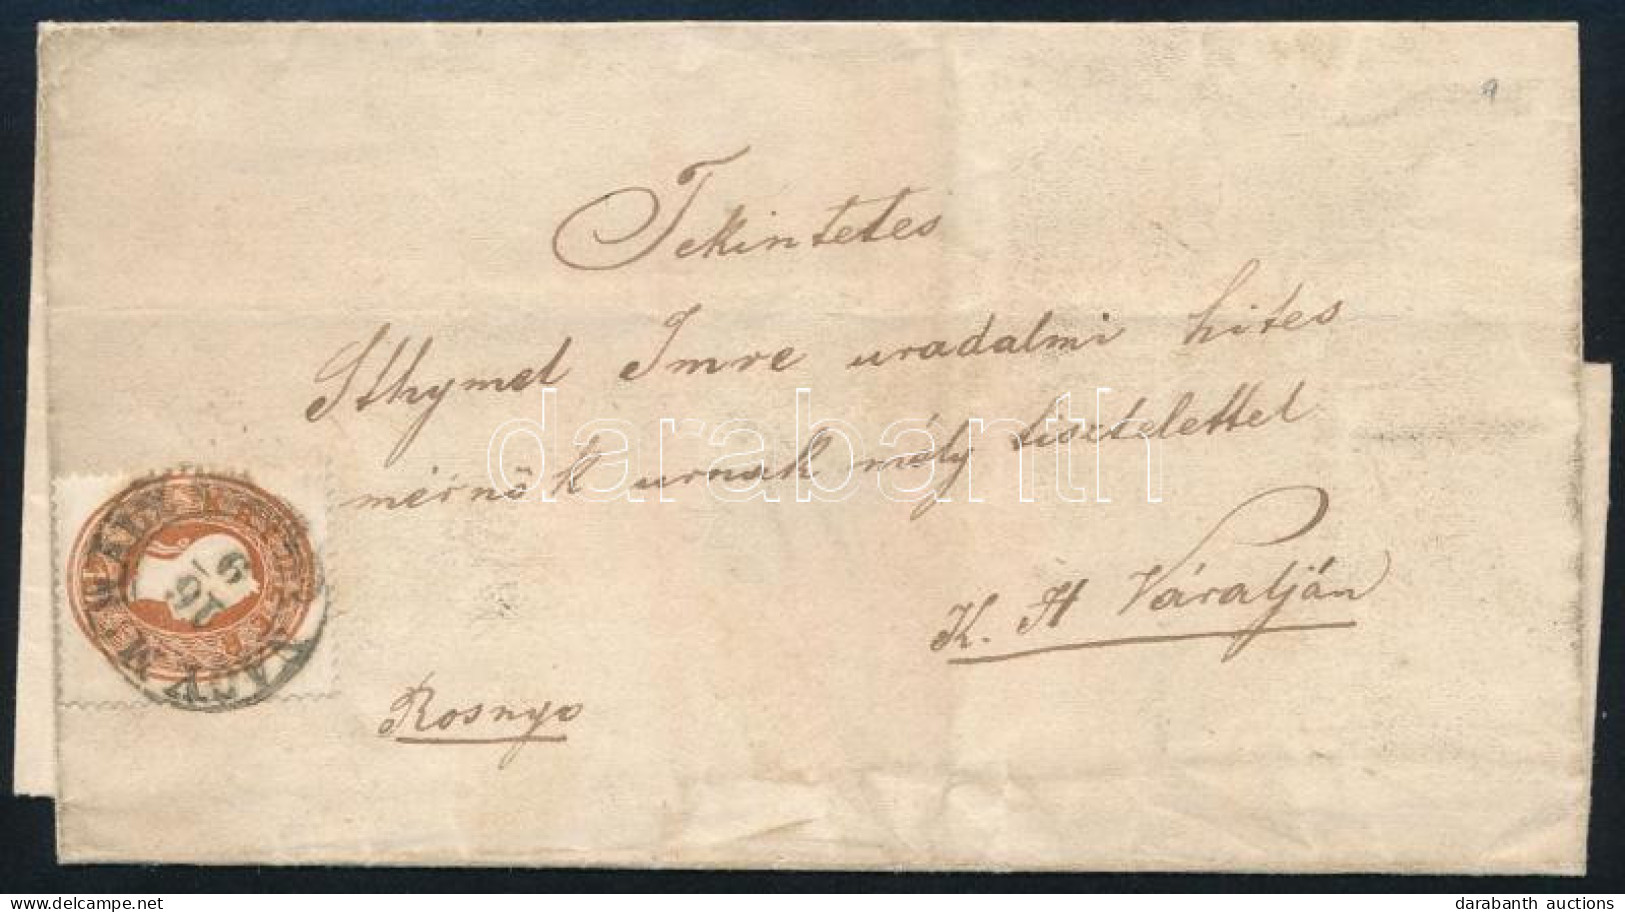 Tekintetes
Sthymel Imre uradalmi hites
mérnök urnak mély tisztelettel
K. H Váralján
Rosnyo
darabanth
NAGY MEGYER
darabanth auctions